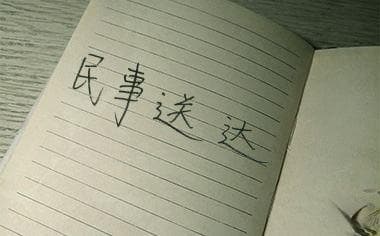 民事送达